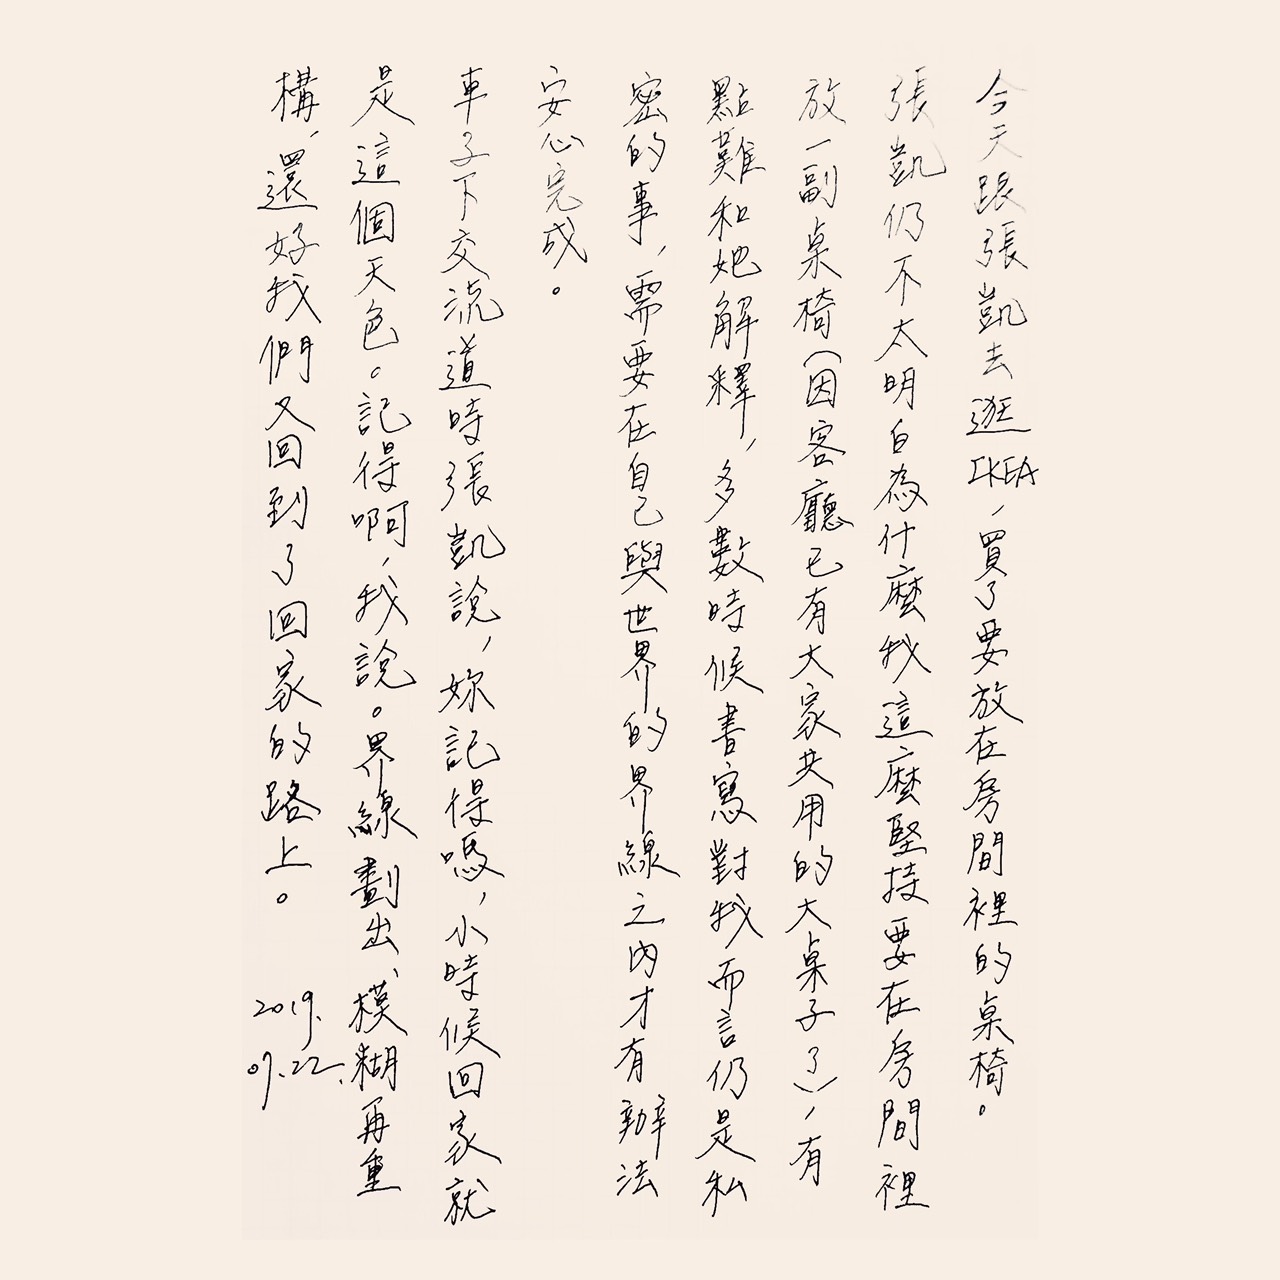 今天跟張凱去逛IKEA，買了要放在房間裡的桌椅。
張凱仍不太明白為什麼我這麼堅持要在房間裡
放一副桌椅（因客廳已有大家共用的大桌子了），有
點難和她解釋，多數時候書寫對我而言仍是私
密的事，需要在自己與世界的界線之內才有辦法
安心完成。
車子下交流道時張凱說，妳記得嗎，小時候回家就
是這個天色。記得啊，我說。界線劃出、模糊再重
構，還好我們又回到了回家的路上。
2019.
07.22.